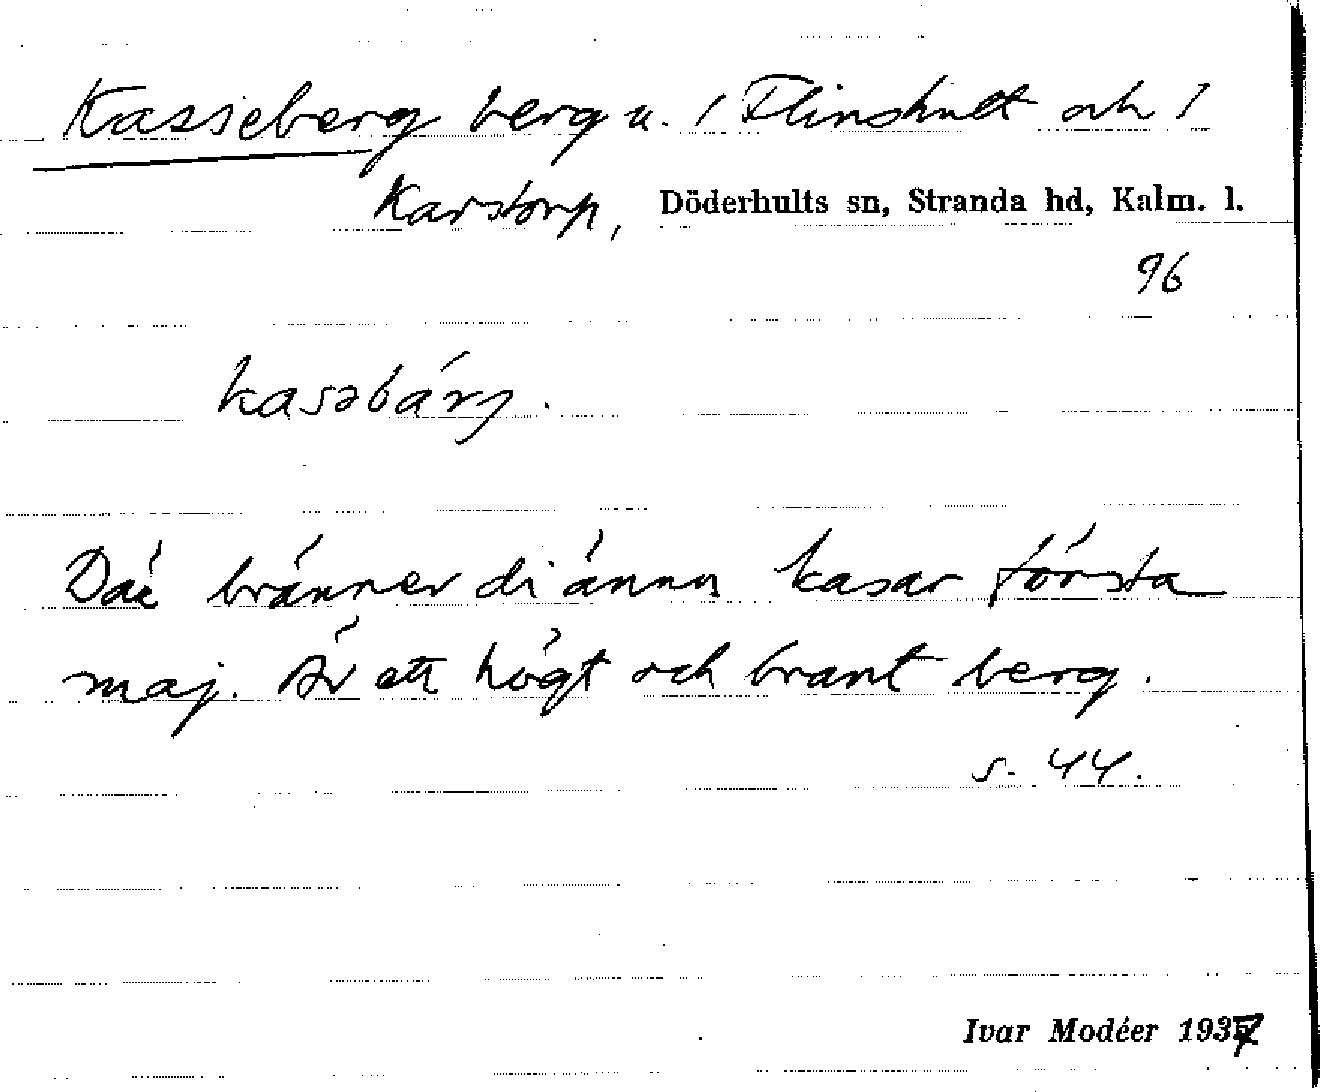 Kasseberg berg u. / Flinshult och /
Karstorp, Döderhults sn, Stranda hd, Kalm. l.
96
kasəbárj.
Däe bränner di ännu kasar första
maj. Är ett högt och brant berg.
s. 44.
Ivar Modéer 1937